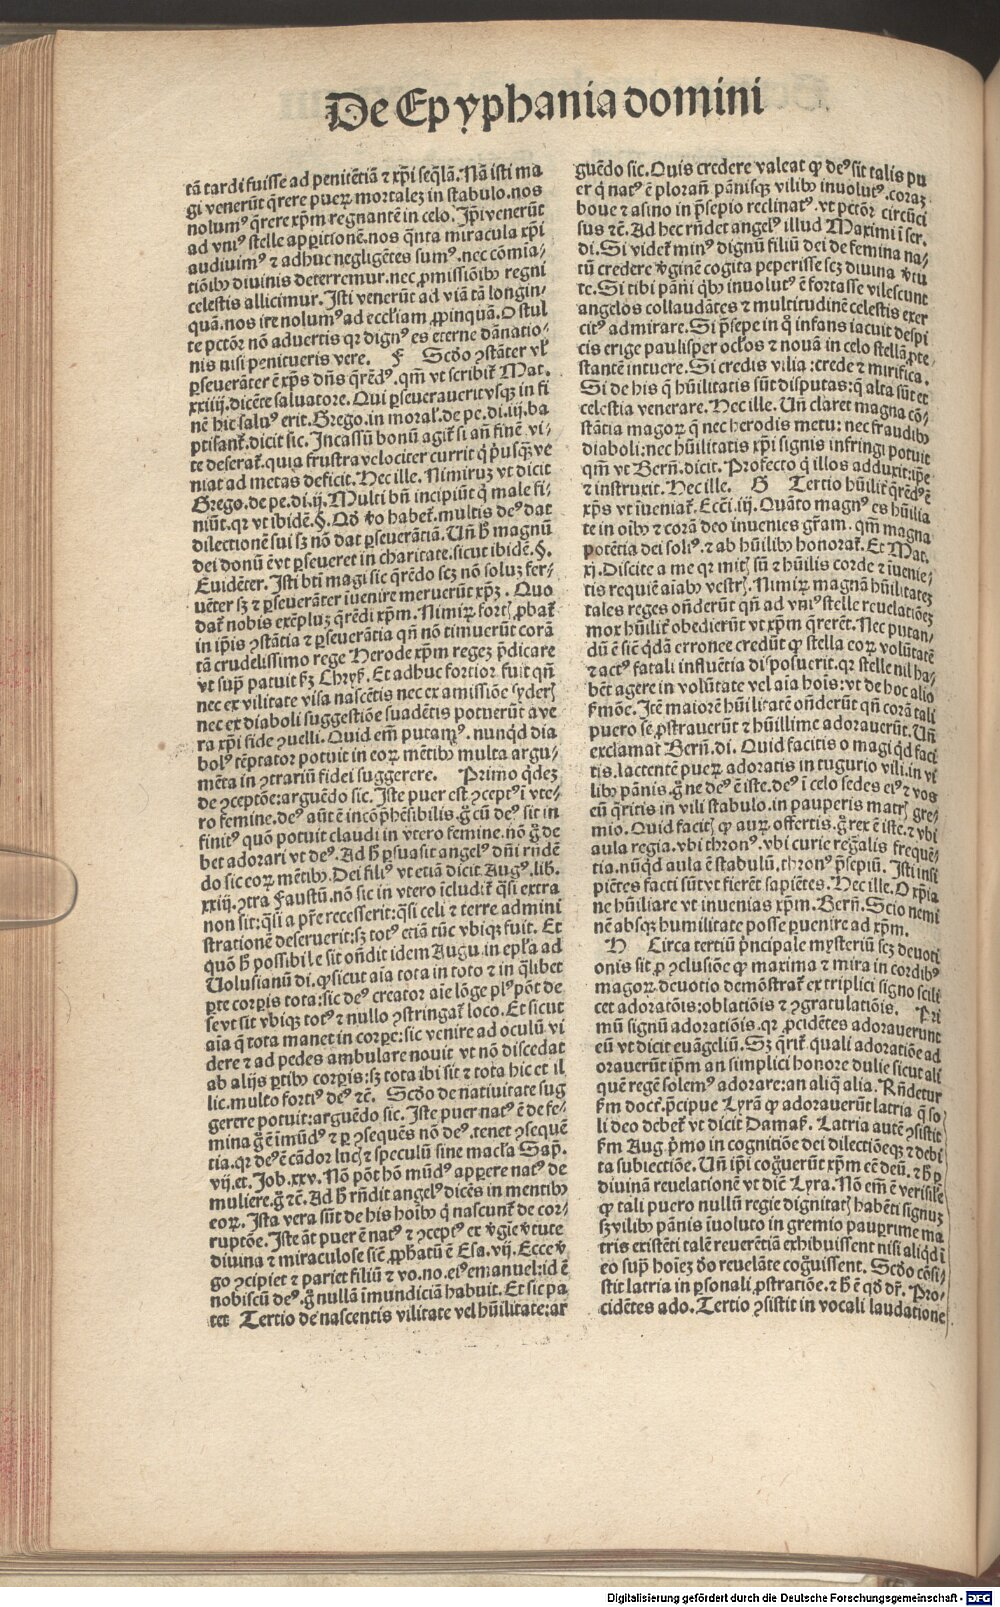 De Epyphania domini
tā tardi fuisse ad penitētiā ⁊ xp̄i seq̄lā. Nā isti ma
gi venerūt q̄rere pueꝝ mortalez in stabulo. nos
nolumꝰ q̄rere xp̄m regnantē in celo. Ip̄i venerūt
ad vniꝰ stelle apparitionē. nos q̄nta miracula xp̄i
audiuimꝰ ⁊ adhuc negligētes sumꝰ. nec cōmia⸗
tiōib₉ diuinis deterremur. nec ꝓmissiōib₉ regni
celestis allicimur. Isti venerūt ad viā tā longin⸗
quā. nos ire nolumꝰ ad eccl'iam ꝓpinquā. O stul
te pctōr nō aduertis qꝛ dignꝰ es eterne dānatio⸗
nis nisi penitueris vere. F Scd̄o ꝯstāter vl'
ꝑseuerāter ē xp̄s dn̄s q̄rēdꝰ. qm̄ vt scribit̄ Mat.
xxiiij. dicēte saluatore. Qui ꝑseuerauerit vsqꝫ in fi
nē hic saluꝰ erit. Grego. in moral'. de pe. di. iij. ba
ptisant̄. dicit sic. Incassū bonū agit̄ si an̄ finē vi⸗
te deserat̄. quia frustra velociter currit q̇ pͥusqͣꝫ ve
niat ad metas deficit. Hec ille. Nimiruz vt dicit
Grego. de pe. di. ij. Multi bn̄ incipiūt q̇ male fi⸗
niūt. qꝛ vt ibidē. §. Qd̄ vo habet̄. multis deꝰ dat
dilectionē sui sꝫ nō dat ꝑseuerātiā. Un̄ h̄ magnū
dei donū ē vt ꝑseueret in charitate. sicut ibidē. §.
Euidēter. Isti bt̄i magi sic q̄rēdo scꝫ nō soluz fer⸗
uēter sꝫ ⁊ ꝑseuerāter īuenire meruerūt xp̄ꝫ. Quo
dat̄ nobis exēpluꝫ q̄rēdi xp̄m. Nimiꝝ fortꝭ ꝓbat̄
in ip̄is ꝯstātia ⁊ ꝑseuerātia qn̄ nō timuerūt corā
tā crudelissimo rege Herode xp̄m regeꝫ p̄dicare
vt supͣ patuit ẜꝫ Chryẜ. Et adhuc fortior fuit qn̄
nec ex vilitate visa nascētis nec ex amissiōe sydeꝝ
nec ex diaboli suggestiōe suadētis potuerūt a ve
ra xp̄i fide ꝯuelli. Quid em̄ putamꝰ. nunqͥd dia
bolꝰ tēptator potuit in eoꝝ mētib₉ multa argu⸗
mēta in ꝯtrariū fidei suggerere. Primo qͥdeꝫ
de ꝯceptōe: arguēdo sic. Iste puer est ꝯceptꝰ ī vte⸗
ro femine. deꝰ aūt ē incōp̄hēsibilis. g̊ cū deꝰ sit in
finitꝰ quō potuit claudi in vtero femine. nō g̊ de
bet adorari vt deꝰ. Ad h̄ ꝑsuasit angelꝰ dn̄i rn̄dē
do sic eoꝝ mētib₉. Dei filiꝰ vt etiā dicit Augꝰ. lib.
xxiij. ꝯtra Faustū. nō sic in vtero īcludit̄ q̄si extra
non sit: q̄si a pr̄e recesserit: q̄si celi ⁊ terre admini
strationē deseruerit: sꝫ totꝰ etiā tūc vbiqꝫ fuit. Et
quō h̄ possibile sit ondit idem Augu. in epl'a ad
Uolusianū di. ꝙ sicut aīa tota in toto ⁊ in q̄libet
ꝑte corꝑis tota: sic deꝰ creator aīe lōge plꝰ pōt de
se vt sit vbiqꝫ totꝰ ⁊ nullo ꝯstringat̄ loco. Et sicut
aīa q̄ tota manet in corꝑe: sic venire ad oculū vi
dere ⁊ ad pedes ambulare nouit vt nō discedat
ab alijs ꝑtib₉ corꝑis: sꝫ tota ibi sit ⁊ tota hic et il
lic. multo fortiꝰ deꝰ ⁊c̄. Scd̄o de natiuitate sug
gerere potuit: arguēdo sic. Iste puer natꝰ ē de fe⸗
mina g̊ ē īmūdꝰ ⁊ ꝑ ꝯsequēs nō deꝰ. tenet ꝯsequē
tia. qꝛ deꝰ ē cādor lucꝭ ⁊ speculū sine macl'a Sap̄.
vij. et. Job. xxv. Nō pōt hō mūdꝰ apparere natꝰ de
muliere. g̊ ⁊c̄. Ad h̄ rn̄dit angelꝰ dicēs in mentib₉
eoꝝ. Ista vera sūt de his hoīb₉ q̇ nascunt̄ de cor⸗
ruptōe. Iste āt puer ē natꝰ ⁊ ꝯceptꝰ ex v̄gīe v̄tute
diuina ⁊ miraculose sicut ꝓphatū ē Esa. vij. Ecce v̄
go ꝯcipiet ⁊ pariet filiū ⁊ vo. no. eiꝰ emanuel: id ē
nobiscū deꝰ. g̊ nullā īmundiciā habuit. Et sic pa
tet Tertio de nascentis vilitate vel hūilitate: ar
guēdo sic. Quis credere valeat ꝙ deꝰ sit talis pu
er q̇ natꝰ ē ploran̄ pānisqꝫ vilib₉ inuolutꝰ. coraꝫ
boue ⁊ asino in p̄sepio reclinatꝰ. vt pctōr circūci
sus ⁊c̄. Ad hec rn̄det angelꝰ illud Maximi ī ser.
di. Si videt̄ minꝰ dignū filiū dei de femina na⸗
tū credere v̄ginē cogita peperisse scꝫ diuina v̄tu
te. Si tibi pāni qͥb₉ inuolutꝰ ē fortasse vilescunt
angelos collaudātes ⁊ multitudinē celestis exer
citꝰ admirare. Si p̄sepe in q̊ infans iacuit despi
cis erige paulisper ocl'os ⁊ nouā in celo stellā ꝓte⸗
stantē intuere. Si credis vilia: crede ⁊ mirifica.
Si de his q̄ hūilitatis sūt disputas: q̄ alta sūt et
celestia venerare. Hec ille. Un̄ claret magna cō⸗
stātia magoꝝ q̄ nec herodis metu: nec fraudib₉
diaboli: nec hūilitatis xp̄i signis infringi potuit
qm̄ vt Bern̄. dicit. Profecto q̇ illos adduxit: ip̄e
⁊ instruxit. Hec ille. G Tertio hūilit̄ q̄rēdꝰ ē
xp̄s vt īueniat̄. Ecci'. iij. Quāto magnꝰ es hūilia
te in oīb₉ ⁊ corā deo inuenies gr̄am. qm̄ magna
potētia dei soliꝰ. ⁊ ab hūilib₉ honorat̄. Et Mat.
xj. Discite a me qꝛ mitꝭ sū ⁊ hūilis corde ⁊ īuenie⸗
tis requiē aīab₉ vestrꝭ. Nimiꝝ magnā hūilitateꝫ
tales reges ondērūt qn̄ ad vniꝰ stelle reuelatiōeꝫ
mox hūilit̄ obedierūt vt xp̄m q̄rerēt. Nec putan⸗
dū ē sicut qͥdā erronee credūt ꝙ stella eoꝝ volūtatē
⁊ actꝰ fatali influētia disposuerit. qꝛ stelle nil ha⸗
bēt agere in volūtate vel aīa hoīs: vt de hoc alio
ẜmōe. Itē maiorē hūilitatē ondērūt qn̄ corā tali
puero se ꝓstrauerūt ⁊ hūillime adorauerūt. Un̄
exclamat Bern̄. di. Quid facitis o magi qͥd faci
tis. lactentē pueꝝ adoratis in tugurio vili. in vi
lib₉ pānis. g̊ne deꝰ ē iste. deꝰ ī celo sedes eiꝰ ⁊ vos
eū q̄ritis in vili stabulo. in pauperis matrꝭ gre⸗
mio. Quid facitꝭ ꝙ auꝝ offertis. g̊ rex ē iste. ⁊ vbi
aula regia. vbi thronꝰ. vbi curie regalis frequē⸗
tia. nūqͥd aula ē stabulū. thronꝰ p̄sepiū. Isti insi
piētes facti sūt vt fierēt sapiētes. Hec ille. O xp̄ia
ne hūiliare vt inuenias xp̄m. Bern̄. Scio nemi
nē absqꝫ humilitate posse ꝑuenire ad xp̄m.
H Circa tertiū p̄ncipale mysteriū scꝫ deuoti
onis sit ꝓ ꝯclusiōe ꝙ maxima ⁊ mira in cordibꝰ
magoꝝ deuotio demōstrat̄ ex triplici signo scili
cet adoratōis: oblatiōis ⁊ ꝯgratulatiōis. Pri
mū signū adoratiōis. qꝛ ꝓcidētes adorauerunt
eū vt dicit euāgeliū. Sꝫ q̄rit̄. quali adoratiōe ad
orauerūt ip̄m an simplici honore dulie sicut ali
quē regē solemꝰ adorare: an aliq̄ alia. Rn̄detur
ẜm doct̄. p̄cipue Lyrā ꝙ adorauerūt latria q̄ so⸗
li deo debet̄ vt dicit Damaẜ. Latria autē ꝯsistit
ẜm Aug. pͥmo in cognitiōe dei dilectiōeqꝫ ⁊ debi
ta subiectiōe. Un̄ ip̄i cog̊uerūt xp̄m eē deū. ⁊ h̄ ꝑ
diuinā reuelationē vt diē Lyra. Nō em̄ ē verisile
ꝙ tali puero nullū regie dignitatꝭ habēti signuꝫ
sꝫ vilib₉ pānis īuoluto in gremio pauprime ma
tris existēti talē reuerētiā exhibuissent nisi aliqͥd ī
eo supͣ hoīeꝫ d̄o reuelāte cog̊uissent. Scd̄o cōsi⸗
stit latria in ꝑsonali ꝓstratiōe. ⁊ h̄ ē qd̄ dr̄. Pro⸗
cidētes ado. Tertio ꝯsistit in vocali laudatione
Digitalisierung gefördert durch die Deutsche Forschungsgemeinschaft - DFG